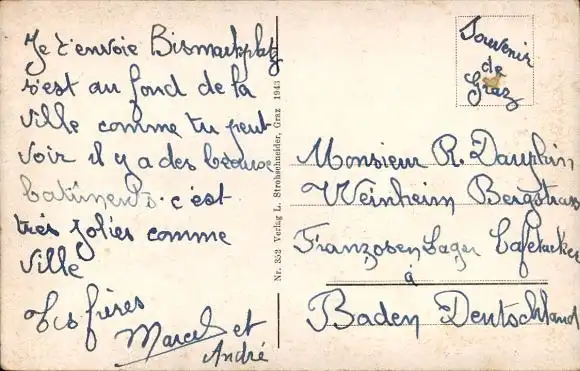 Je t'envoie Bismarkplatz
s'est au fond de la
ville comme tu peut
voir il y a des beaux
batiments. c'est
très jolies comme
ville
Tes frères
Marcel et
André
Nr. 352 Verlag L. Strohschneider, Graz 1943
Souvenir
de
Graz
Monsieur R. Dauphin
Weinheim Bergstrass
Franzosen Lager
à
Baden Deutschland